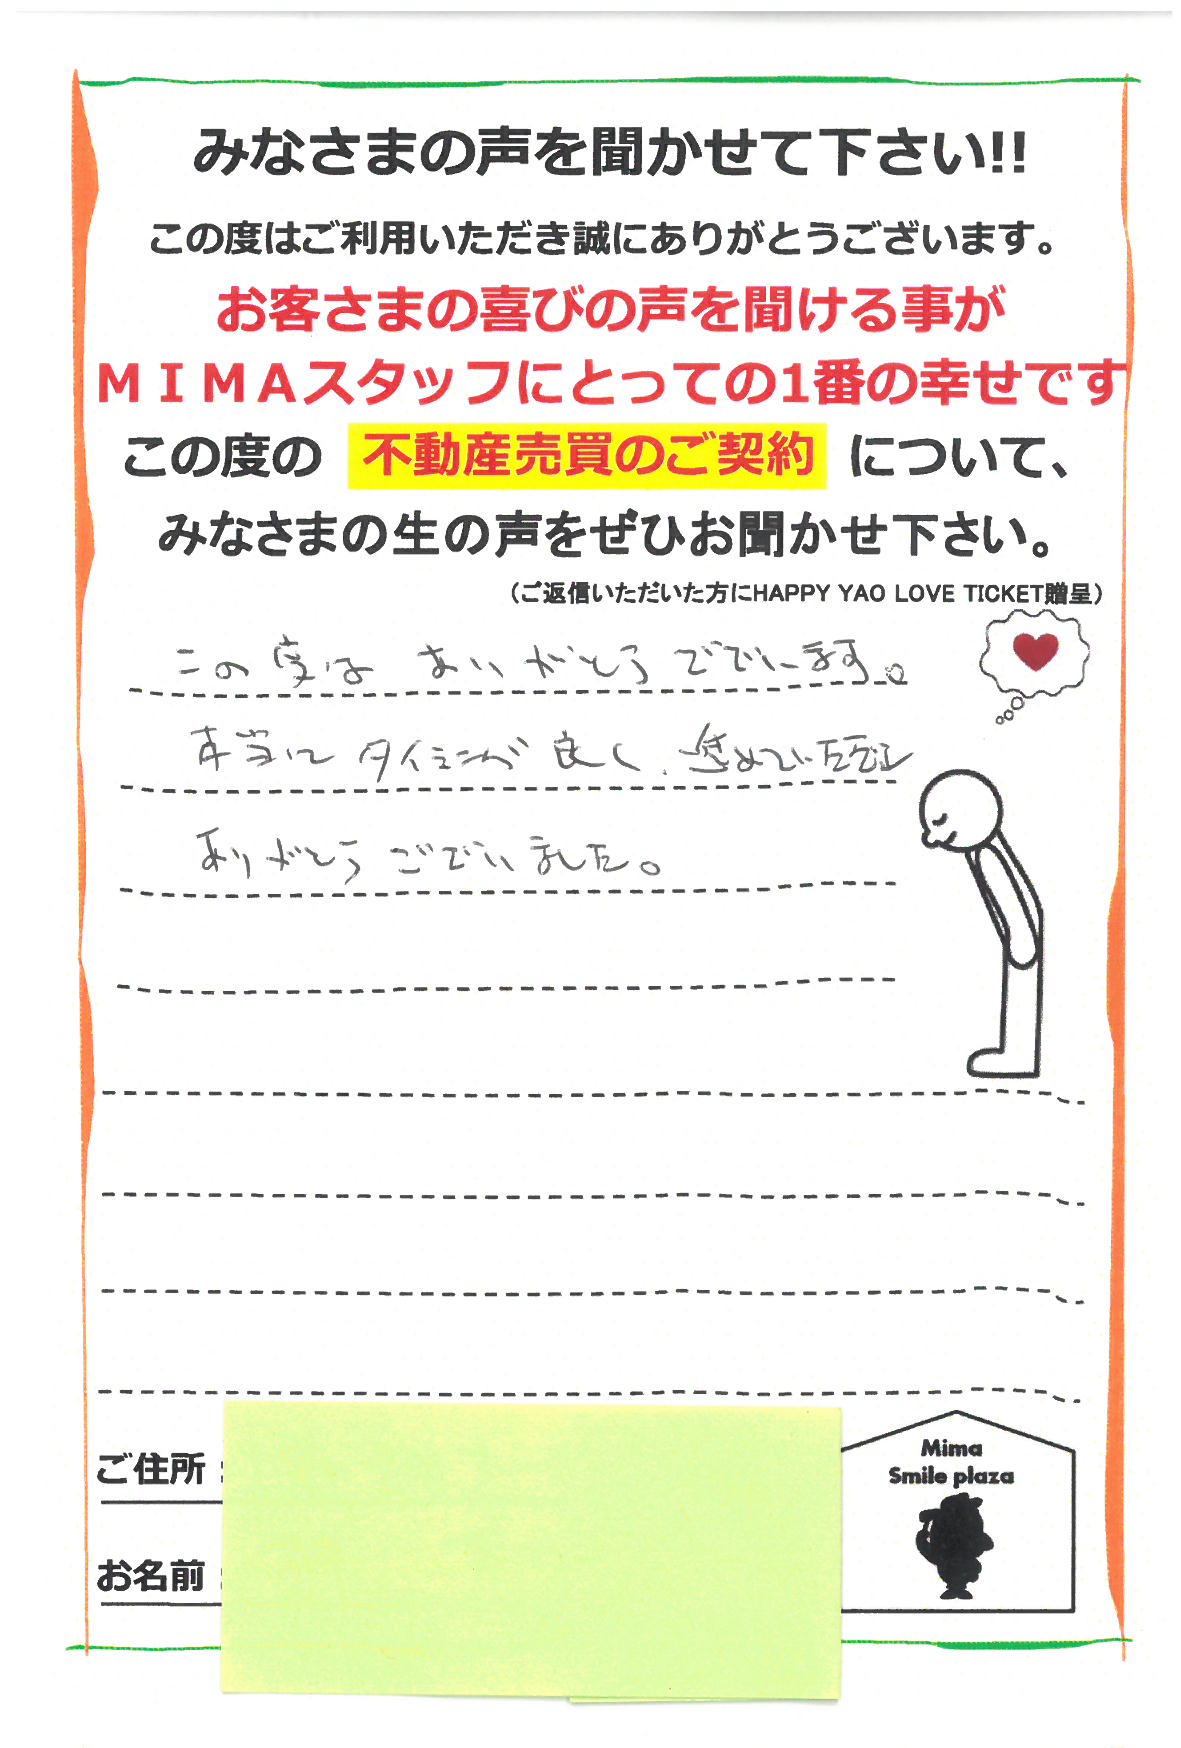 みなさまの声を聞かせて下さい!!
この度はご利用いただき誠にありがとうございます。
お客さまの喜びの声を聞ける事が
ＭＩＭＡスタッフにとっての1番の幸せです
この度の 不動産売買のご契約 について、
みなさまの生の声をぜひお聞かせ下さい。
（ご返信いただいた方にHAPPY YAO LOVE TICKET贈呈）
この度は ありがとうございます。
本当に タイミングが 良く、進めていただき
ありがとうございました。
ご住所：
お名前：
Mima
Smile plaza